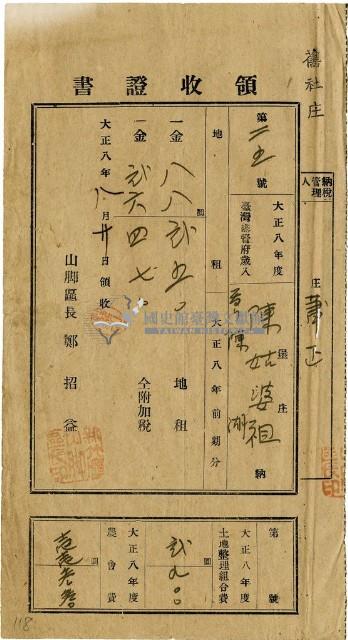 舊社庄
納稅管理人
庄 蕭正
領收證書
第 二五 號
大正八年度
臺灣總督府歲入
堡 庄
陳姑婆祖 納
地租
大正八年前期分
一金 八八貳五〇 圓 地租
一金 貳六四七 仝附加稅
大正八年八月廿日領收
山脚區長 鄭招益
第 號
大正八年度
土地整理組合費
貳九〇〇 圓
大正八年度
農會費
國史館臺灣文獻館
TAIWAN HISTORICA
118